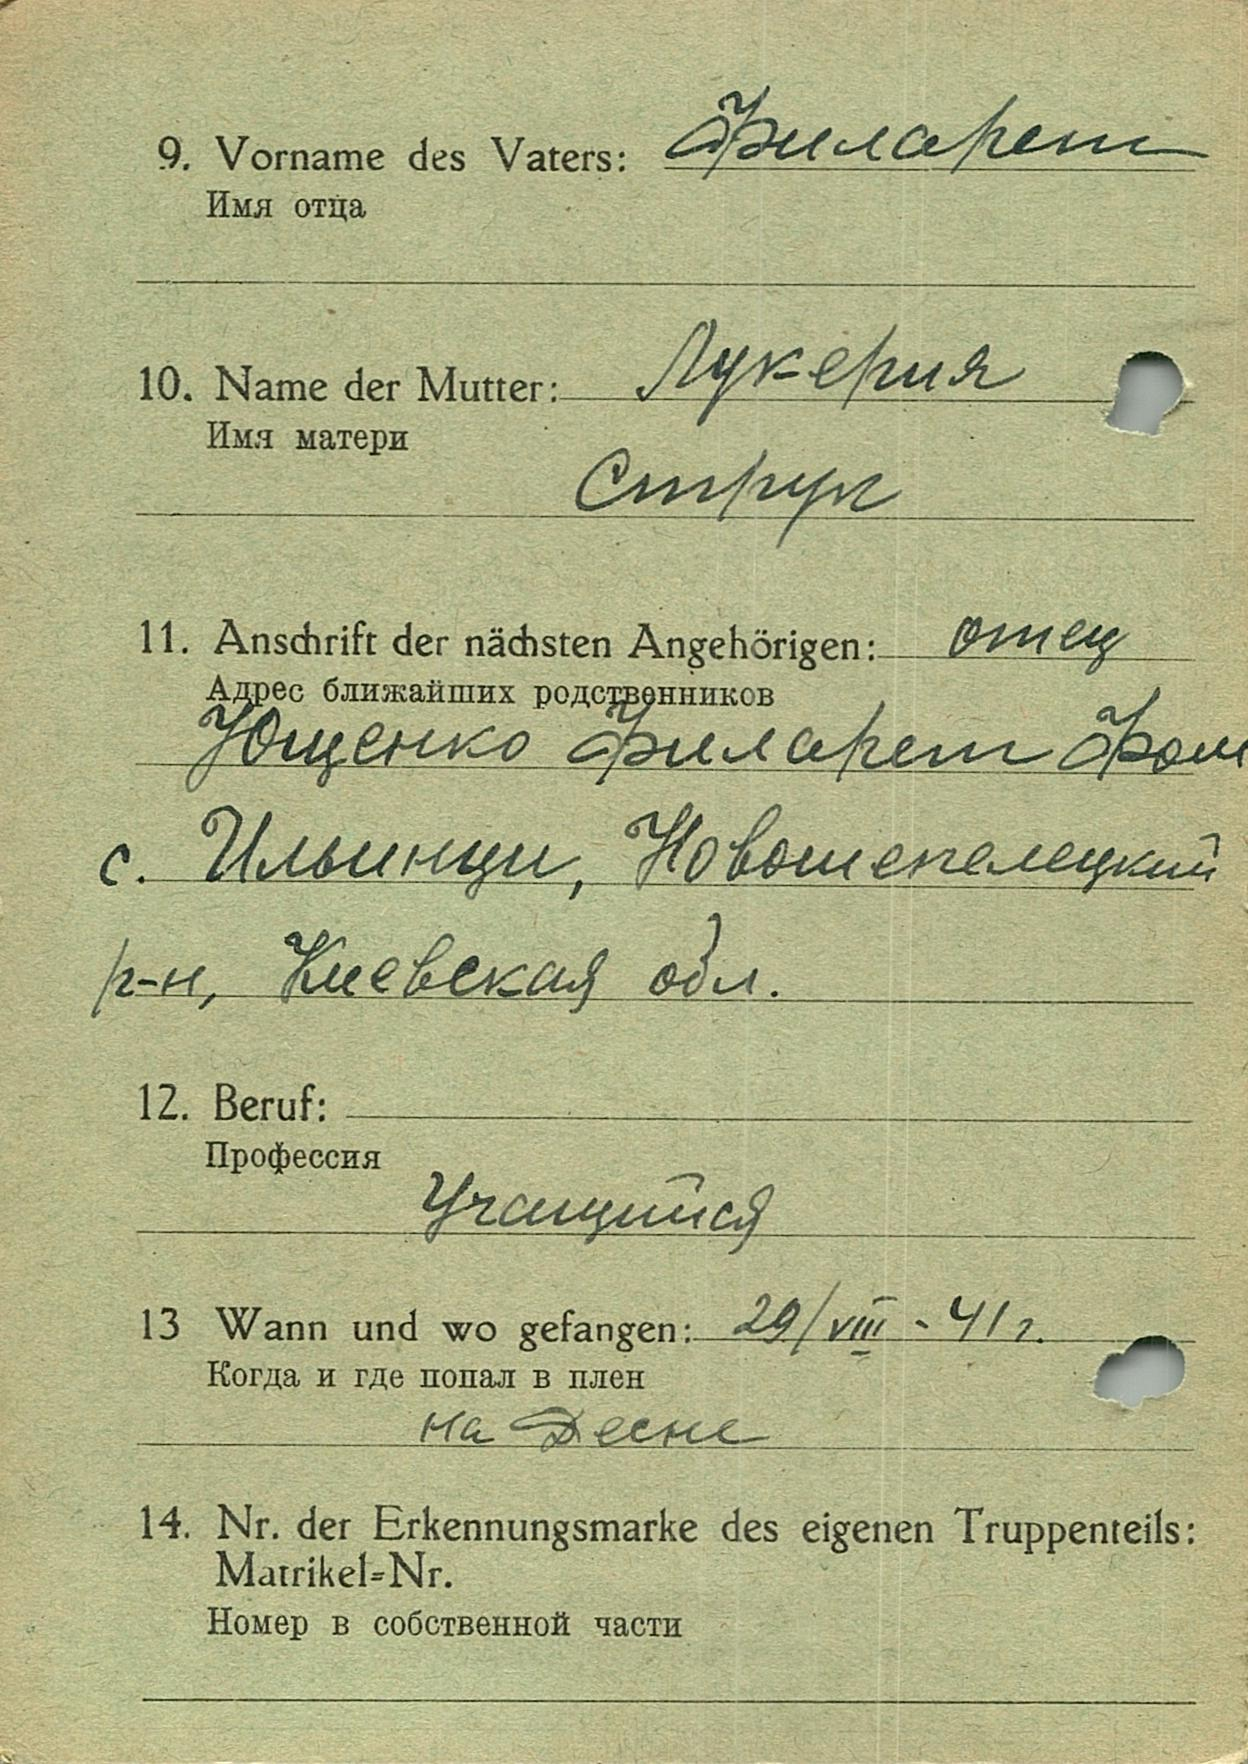 9. Vorname des Vaters: Филарет
Имя отца
10. Name der Mutter: Лукерия
Имя матери
Струк
11. Anschrift der nächsten Angehörigen: отец
Адрес ближайших родственников
Ющенко Филарет Фом
с. Ильинци, Новошепелецкий
р-н, Киевская обл.
12. Beruf:
Профессия
Учащийся
13 Wann und wo gefangen: 29/VIII - 41 г.
Когда и где попал в плен
на Десне
14. Nr. der Erkennungsmarke des eigenen Truppenteils:
Matrikel=Nr.
Номер в собственной части